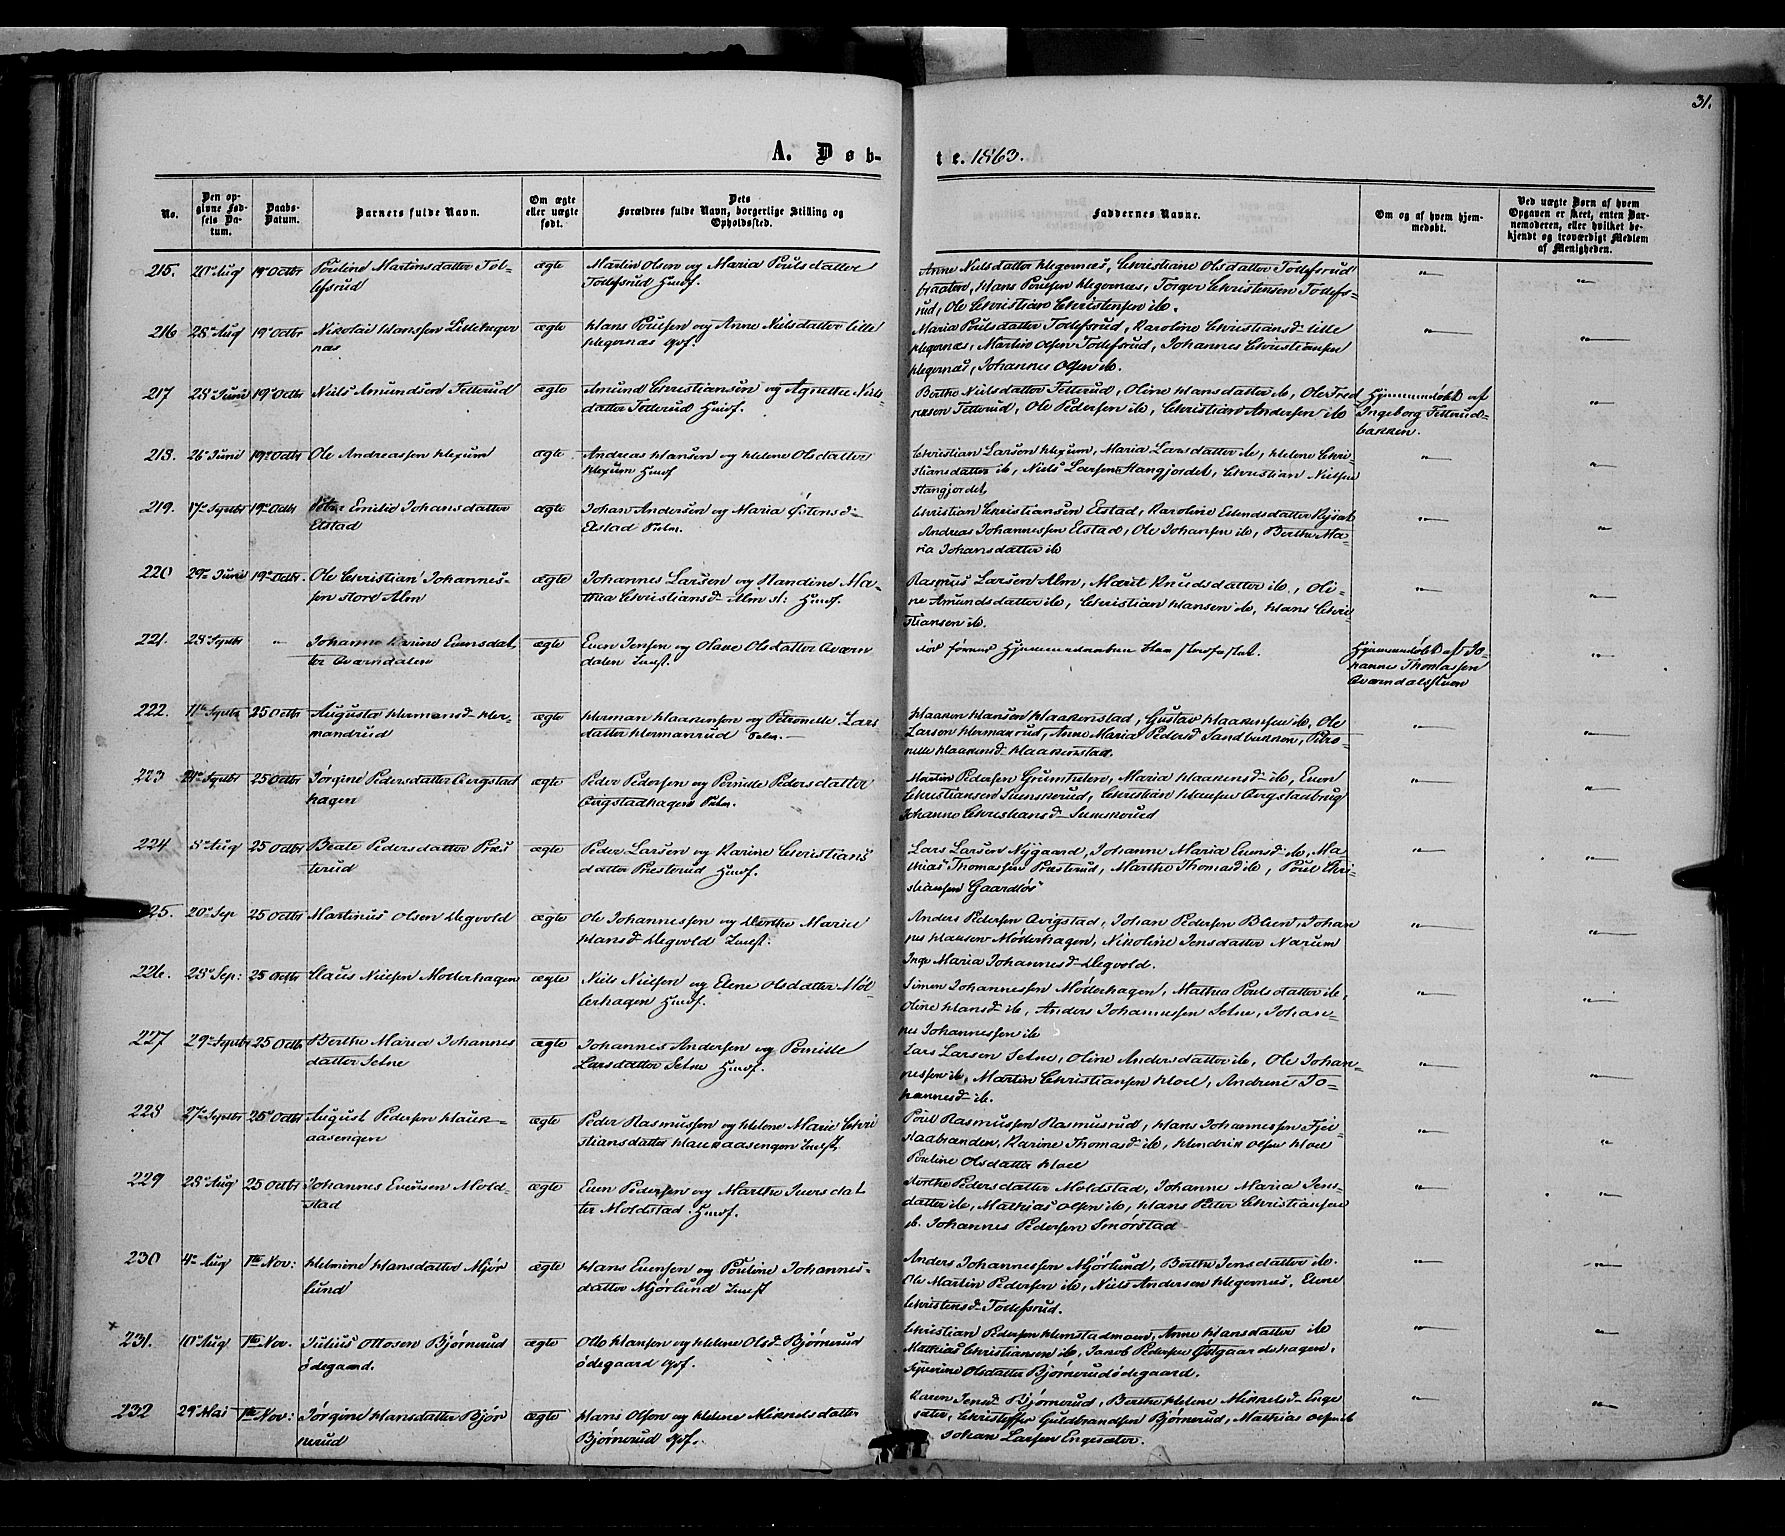 31.
A. Døb-
te. 1863.
No.
Den op-
givne Fød-
sels Da-
tum.
Daabs-
Datum.
Barnets fulde Navn.
Om ægte
eller uægte
født.
Dets
Forældres fulde Navn, borgerlige Stilling og
Opholdssted.
Faddernes Navne.
Om og af hvem hjem-
medøbt.
Ved uægte Børn af hvem
Opgaven er skeet, enten Bar-
nemoderen, eller hvilket be-
kjendt og troværdigt Medlem
af Menigheden.
215. 20de Aug 19de Octbr Pouline Martinsdatter Tol-
lefsrud
ægte
Martin Olsen og Maria Poulsdatter
Tollefsrud Husf.
Anne Nielsdatter Hegernæs, Christiane Olsdatter Tollefsrud
braaten, Hans Poulsen Hegernæs, Torger Christensen Tollefs-
rud, Ole Christian Christensen ib.
216 28de Aug 19de Octbr Nikolai Hanssen Lilleheger
næs
ægte
Hans Poulsen og Anne Nielsdatter lille
Hegernæs Gvf.
Maria Poulsdatter Tollefsrud, Karoline Christiansd. lille
Hegernæs, Martin Olsen Tollefsrud, Johannes Christiansen
Hegernæs, Johannes Olsen ib.
217 28de Juni 19de Octbr Niels Amundsen Fetterud
ægte
Amund Christiansen og Agnethe Niels-
datter Fetterud Husf.
Berthe Nielsdatter Fetterud, Oline Hansdatter ib, Ole Fred
riksen Fetterud, Ole Pedersen ib, Christian Andersen ib
Hjemmedøbt af
Ingeborg Fetterud-
bakken.
218. 26de Juni 19de Octbr Ole Andreassen Hexum
ægte
Andreas Hansen og Helene Olsdatter
Hexum Husf
Christian Larsen Hexum, Maria Larsdatter ib, Helene Chri-
stiansdatter ib, Niels Larsen Stangjordet, Christian Nielsen
Stangjordet
219. 17de Septbr 19de Octbr Emilie Johansdatter
Elstad
ægte
Johan Andersen og Maria Østensd.
Elstad Selm.
Christian Christiansen Elstad, Karoline Erlandsdatter
Andreas Johannessen Elstad, Ole Johansen ib, Berthe Ma-
ria Johansdatter ib
220 29de Juni 19de Octbr. Ole Christian Johannes-
sen store Alm
ægte
Johannes Larsen og Randine Ma-
thea Christiansd. Alm st: Husf.
Rasmus Larsen Alm, Marit Knudsdatter ib, Oli-
ne Amundsdatter ib, Christian Hansen ib, Hans Chri-
stiansen ib.
221. 28de Septbr " Johanne Karine Evensdat
ter Qværndalen
ægte
Even Jensen og Olave Olsdatter Qværn
dalen Inst.
Hjemmedaaben blev stadfæstet.
Hjemmedøbt af Jo-
hannes Thomassen
Qværndalsstuen
222. 11te Septbr 25 Octbr Augusta Hermansd. Her-
mandrud
ægte
Herman Haakensen og Petronelle Lars
datter Hermanrud Selm.
Haaken Hansen Haakenstad, Gustav Haakensen ib, Ole
Larsen Hermanrud, Anne Maria Pedersd Sandbakken, Petro-
nelle Haakensd. Haakenstad
223 24de Septbr 25 Octbr Jørgine Pedersdatter Qvigstad
hagen
ægte
Peder Pedersen og Pernille Pedersdatter
Qvigstadhagen Selm.
Martin Pedersen Grimtulen, Maria Haakensd. ib, Even
Christiansen Sumsrud, Christian Hansen Qvigstadbrug
Johanne Christiansd. Sumsrud
224 8de Aug 25 Octbr Beate Pedersdatter Præs
terud
ægte
Peder Larsen og Karine Christians
datter Presterud Husf.
Lars Larsen Nygaard, Johanne Maria Evensd. ib, Ma
thias Thomassen Presterud, Marthe Thomasd ib, Poul Chri-
stiansen Gaardløs
225. 20de Sep 25 Octbr Martinus Olsen Degvold
ægte
Ole Johannessen og Dorthe Marie
Hansd. Degvold Inst:
Anders Pedersen Qvigstad, Johan Pedersen Blien, Johan
nes Hansen Mødderhagen, Nikoline Jensdatter Narum
Inge Maria Johannesd. Degvold.
226. 28de Sep: 25 Octbr Claus Nielsen Mødderhagen
ægte
Niels Nielsen og Elene Olsdatter Mød-
derhagen Husf.
Simen Johannessen Mødderhagen, Mathea Poulsdatter ib,
Oline Hansd. ib, Anders Johannessen Setne, Johan-
nes Johannessen ib
227 29de Septbr 25 Octbr Berthe Maria Johannes
datter Setne
ægte
Johannes Andersen og Pernille
Larsdatter Setne Husf.
Lars Larsen Setne, Oline Andersdatter ib, Ole Johan-
nessen ib, Martin Christiansen Hoel, Andrine Jo-
hannesd. ib.
228 27de Septbr 25de Octbr August Pedersen Hauk-
aasengen
ægte
Peder Rasmussen og Helene Marie Chri
stiansdatter Haukaasengen Inst.
Poul Rasmussen Rasmusrud, Hans Johannessen Fjel-
staabraaden, Karine Thomasd. ib, Hendrik Olsen Hoel
Pouline Olsdatter Hoel
229 28de Aug 25 Octbr Johannes Evensen Mold-
stad
ægte
Even Pedersen og Marthe Iversdat
ter Moldstad. Husf.
Dorthe Pedersdatter Moldstad, Johanne Maria Jens-
datter ib, Mathias Olsen ib, Hans Peter Christiansen
ib. Johannes Pedersen Smørstad
230 4de Aug 1ste Nov: Helmine Hansdatter Mjør
lund
ægte
Hans Evensen og Pouline Johannes-
datter Mjørlund Inst
Anders Johannessen Mjørlund, Berthe Jensdatter ib.
Ole Martin Pedersen ib, Niels Andersen Hegernæs. Elene
Christensd. Tollefsrud.
231. 10de Aug 1ste Nov. Julius Ottosen Bjørnerud
ødegaard.
ægte
Otto Hansen og Helene Olsd. Bjørnerud
ødegaard Gvf.
Christian Pedersen Hemstadmoen, Anne Hansdatter ib
Mathias Christiansen ib, Jacob Pedersen Østgaardshagen,
Syverine Olsdatter Bjørnerudødegaard.
232 29de Mai 1ste Nov: Jørgine Hansdatter Bjør
nerud
ægte
Hans Olsen og Helene Mikkelsdatter
Bjørnerud Gvf.
Karen Jensd. Bjørnerud, Berthe Helene Mikkelsd. Enge
sæter, Christoffer Guldbrandsen Bjørnerud, Mathias Olsen ib
Johan Larsen Engesæter.